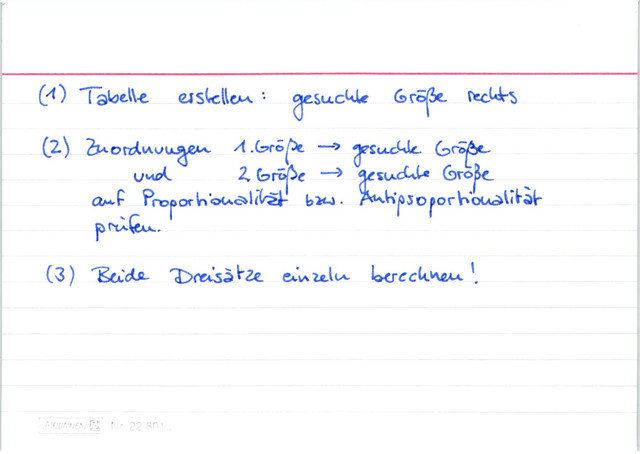 (1) Tabelle erstellen: gesuchte Größe rechts
(2) Zuordnungen 1. Größe → gesuchte Größe
und 2. Größe → gesuchte Größe
auf Proportionalität bzw. Antipsoportionalität
prüfen.
(3) Beide Dreisätze einzeln berechnen!